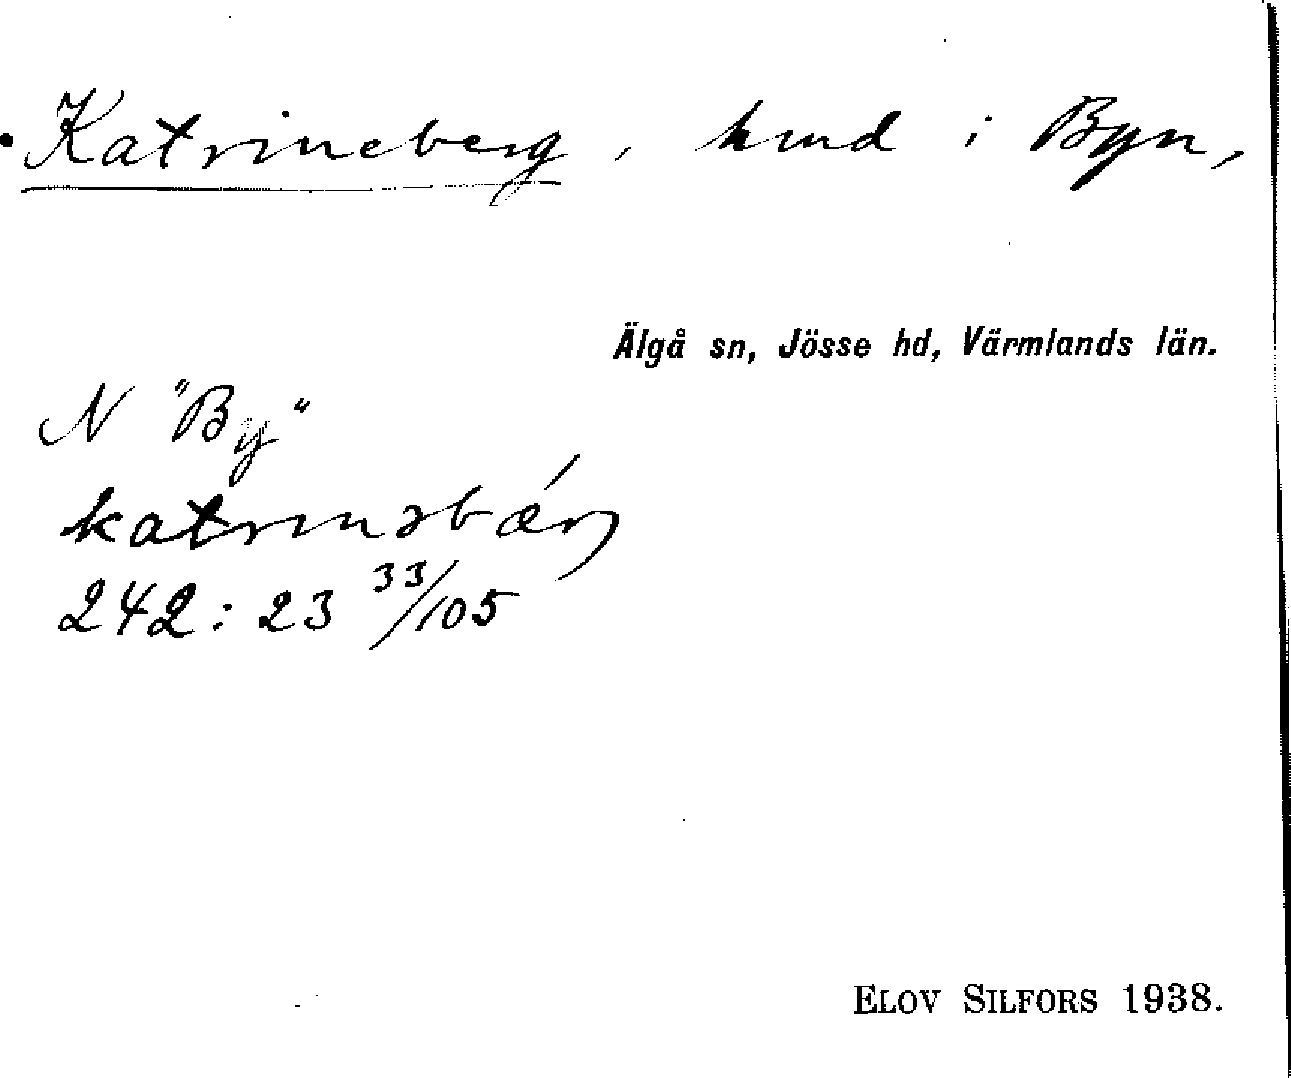 Katrineberg, hmd i Byn,
Älgå sn, Jösse hd, Värmlands län.
N "By"
katrinəbǽrj
242:23 33/105
ELOV SILFORS 1938.